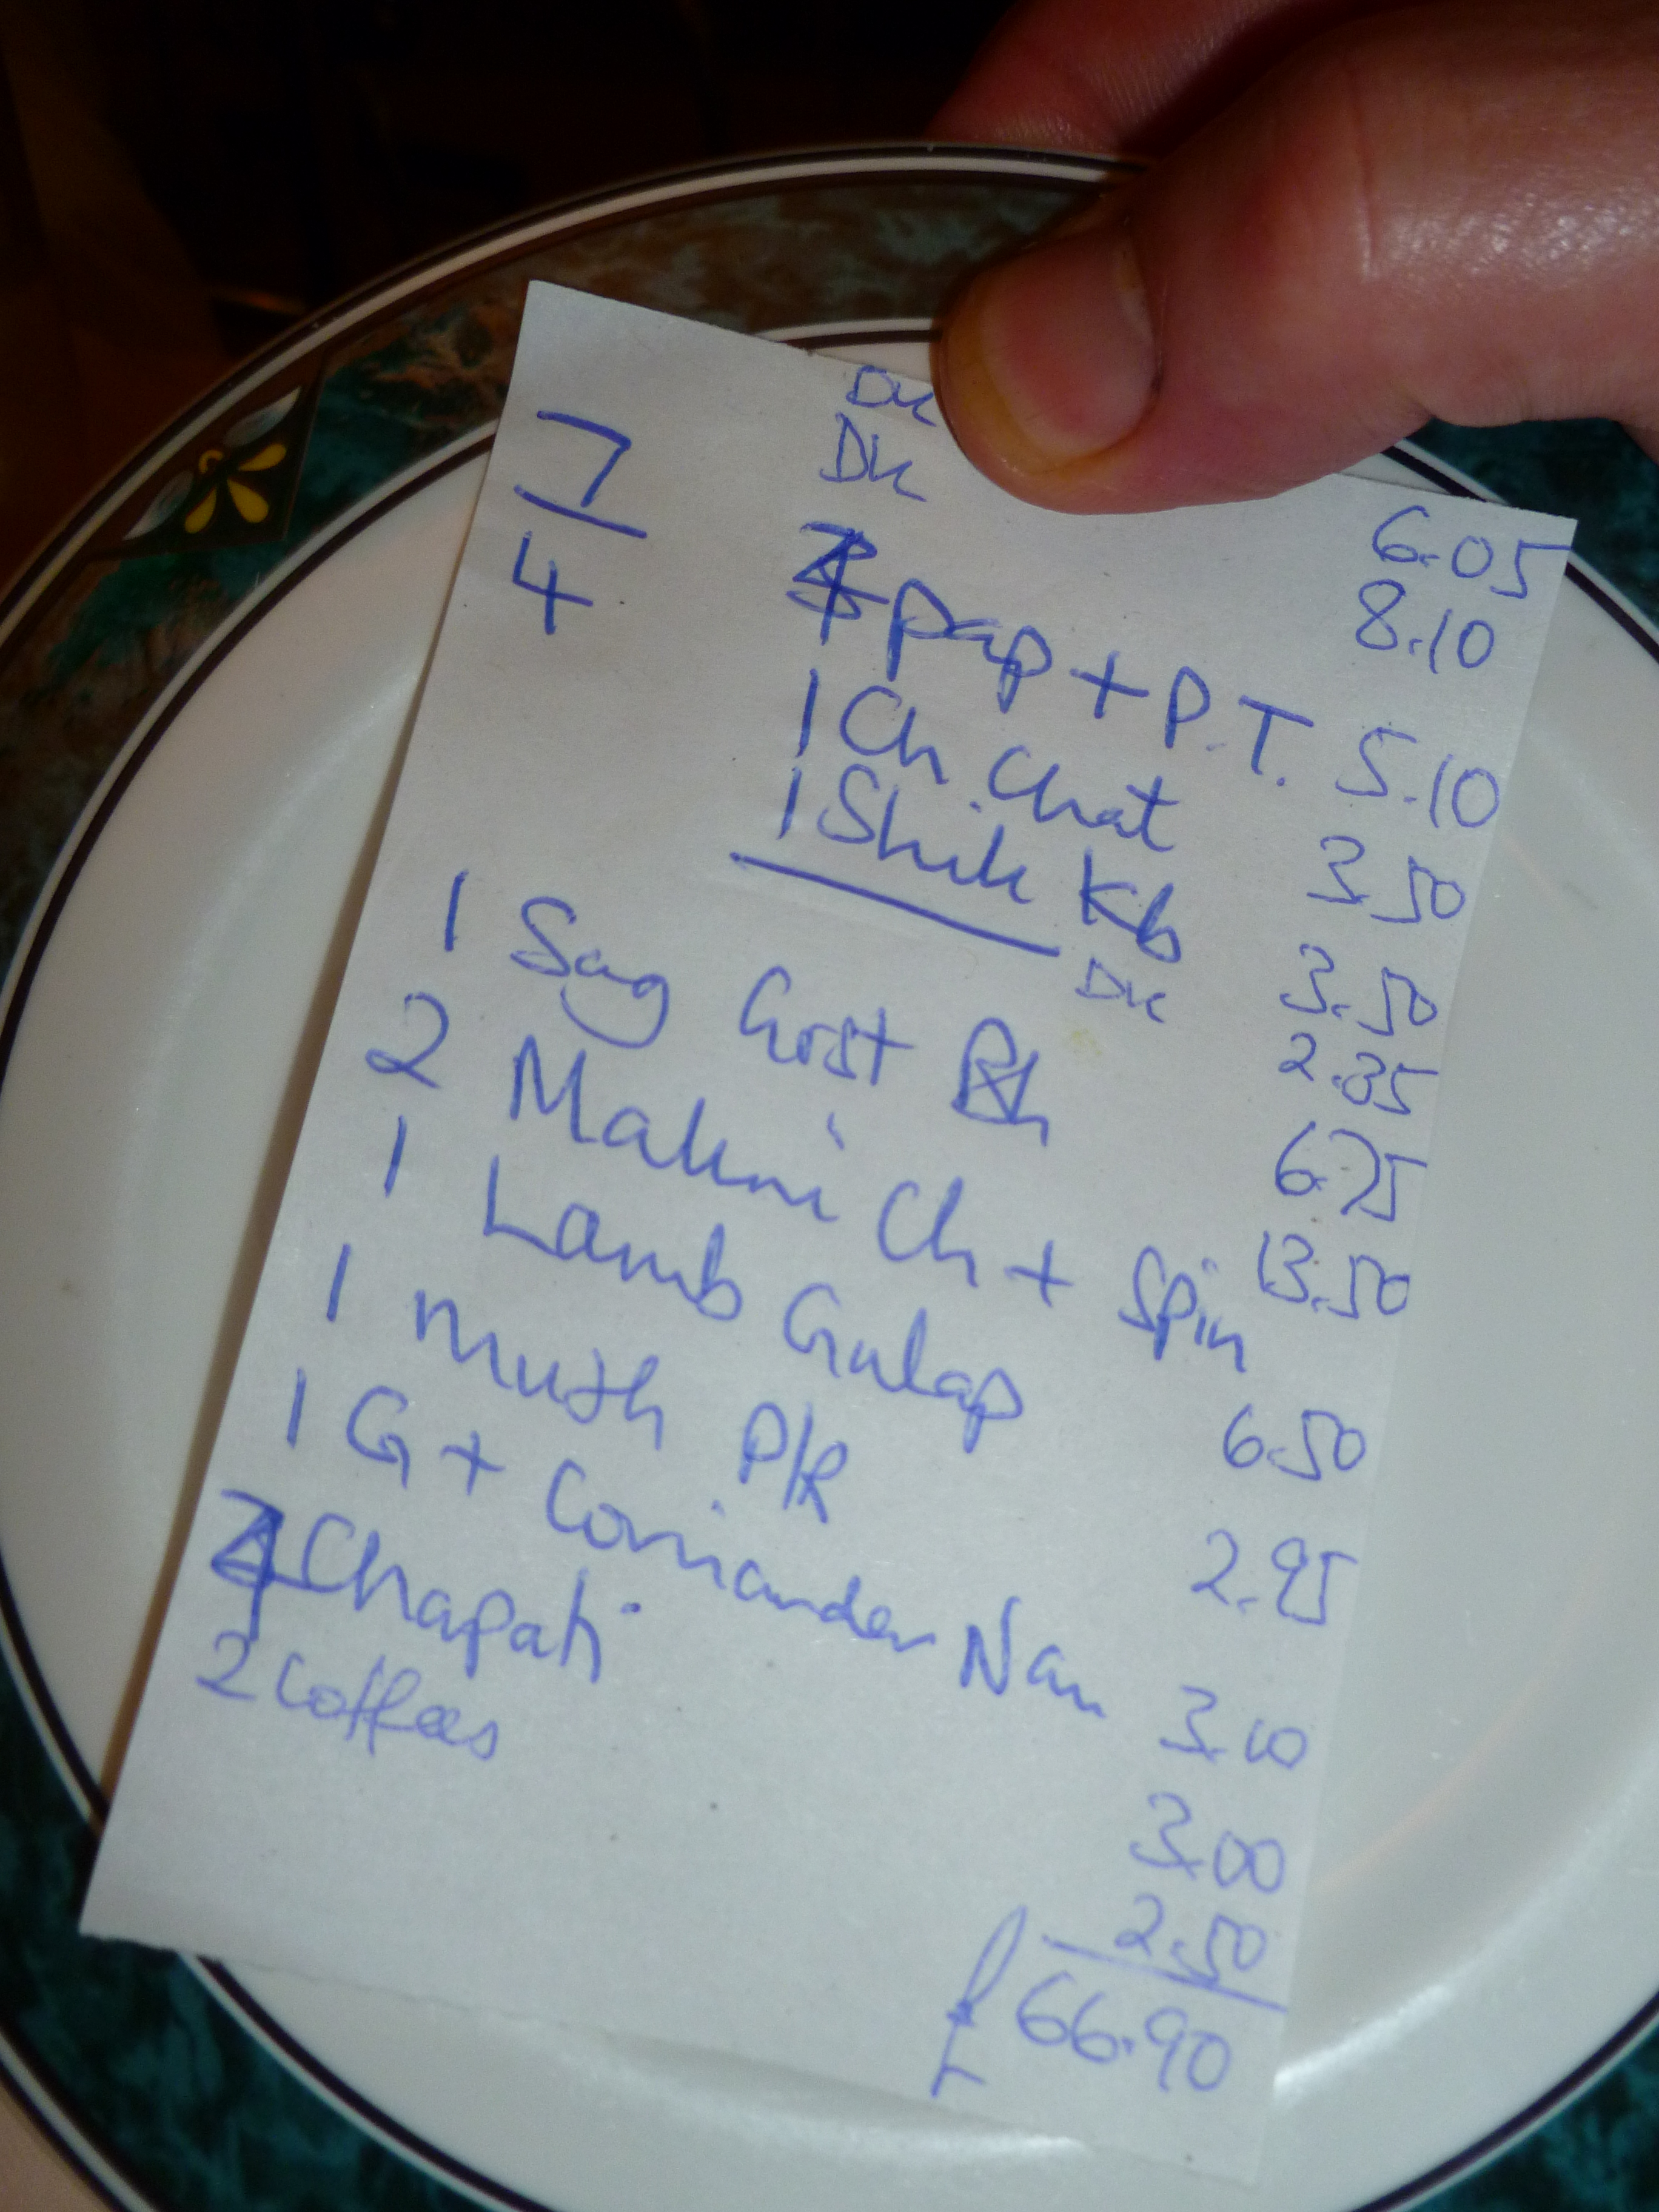 7
4
Dk 6.05
Dk 8.10
4 Pap + P.T. 5.10
1 Ch. Chat 3.50
1 Shik Kb 3.50
Dk 2.35
1 Sag Gost 6.75
2 Makni Ch + Spin 13.50
1 Lamb Gulap 6.50
1 Mush P/R 2.95
1 G + Coriander Nan 3.10
4 Chapati 3.00
2 Coffees 2.50
£ 66.90